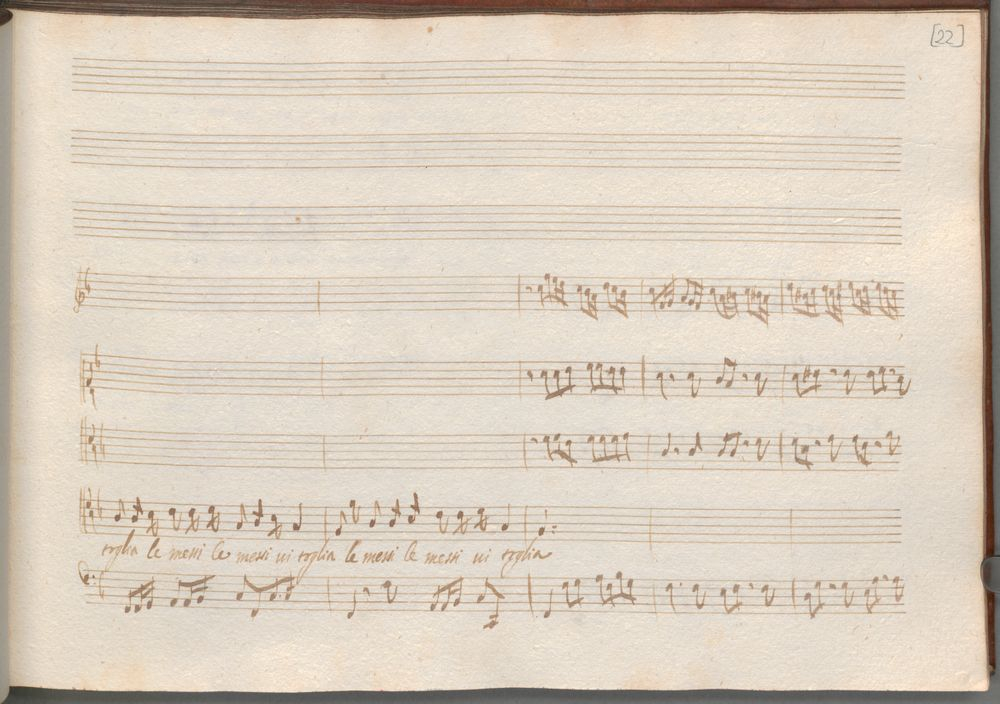 [22]
toglia le messi le messi ui toglia le messi le messi ui toglia